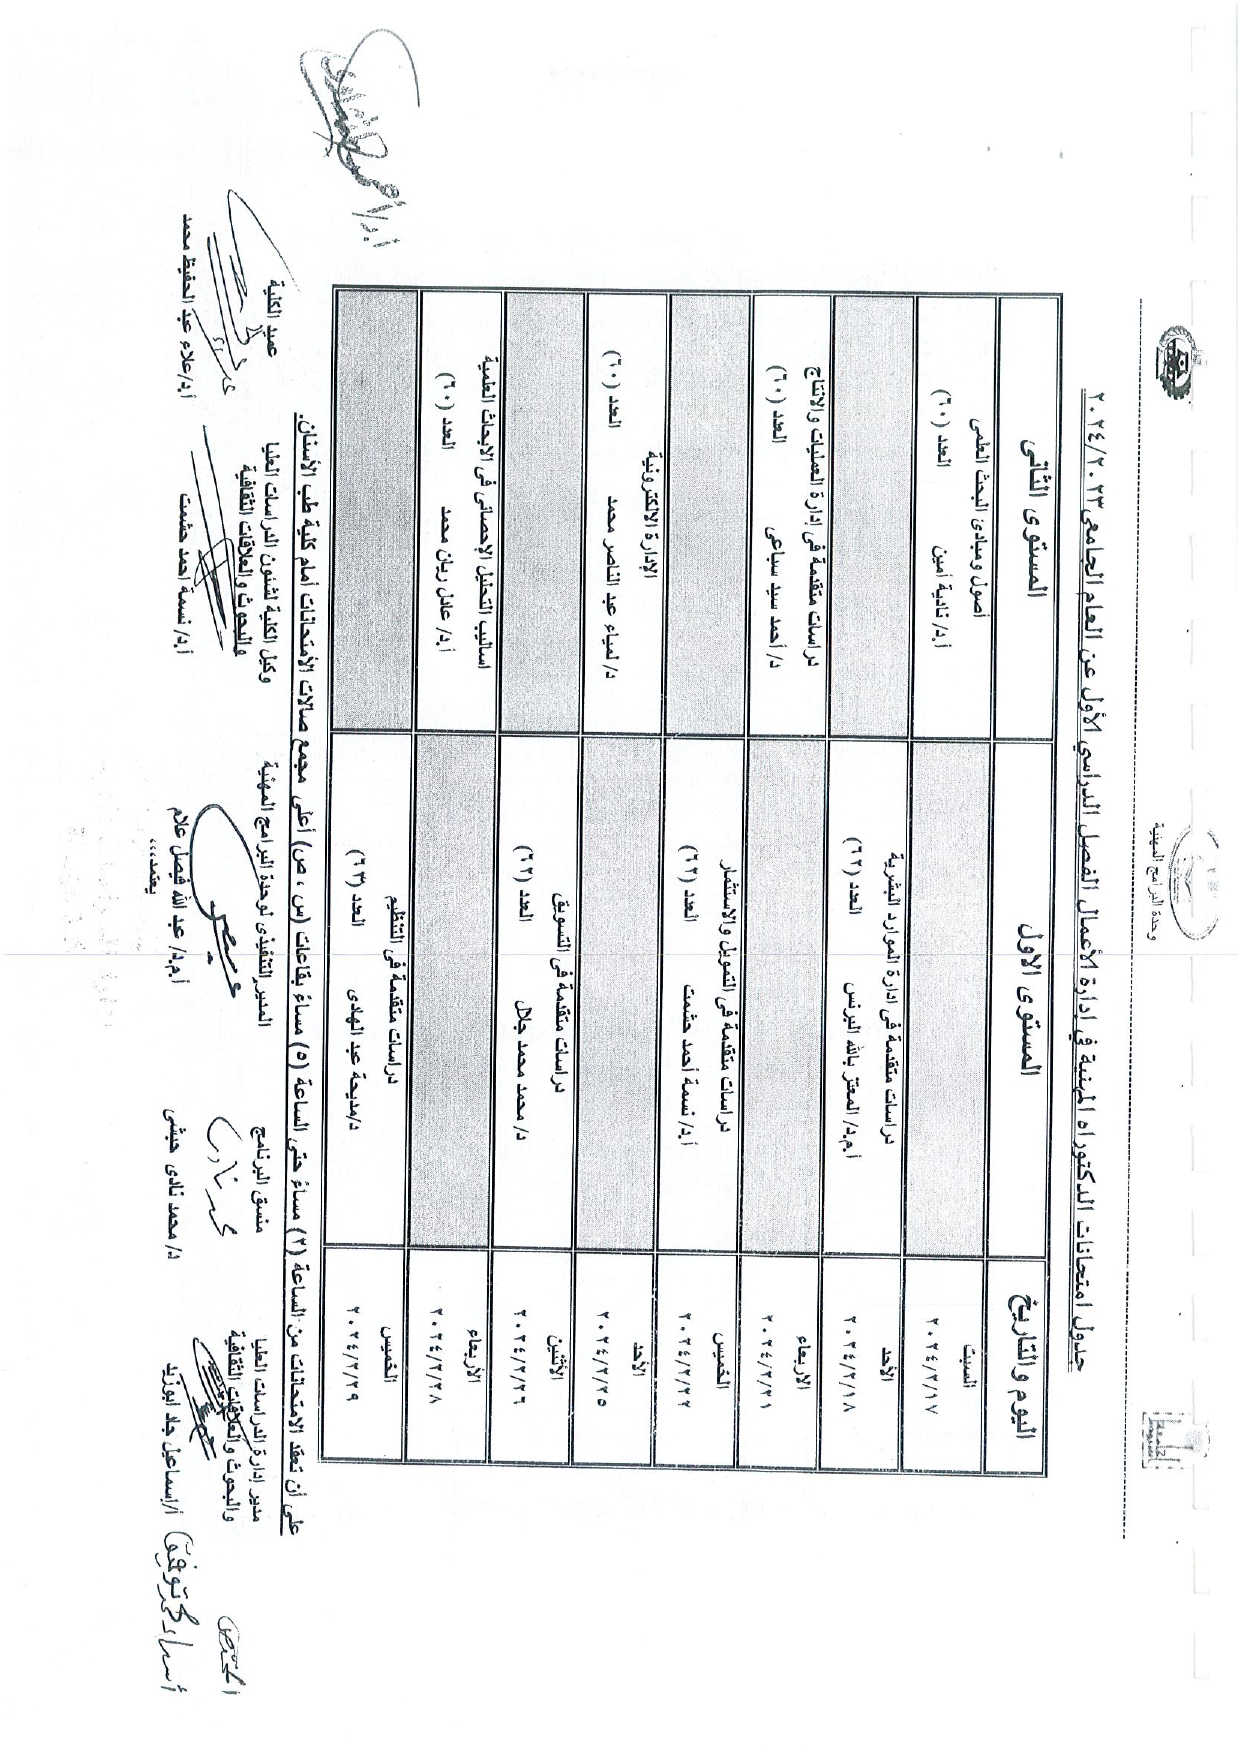 وحدة البرامج المهنية
جدول امتحانات الدكتوراه المهنية في إدارة الأعمال الفصل الدراسي الأول عن العام الجامعى ٢٠٢٤/٢٠٢٣
اليوم والتاريخ المستوى الاول المستوى الثانى
السبت
٢٠٢٤/٢/١٧
أصول ومبادئ البحث العلمى
أ.د/ نادية أمين العدد (٦٠)
الأحد
٢٠٢٤/٢/١٨
دراسات متقدمة فى ادارة الموارد البشرية
أ.م.د/ المعتز بالله البرنس العدد (٦٢)
الاربعاء
٢٠٢٤/٢/٢١
دراسات متقدمة فى إدارة العمليات والانتاج
د/ أحمد سيد سباعى العدد (٦٠)
الخميس
٢٠٢٤/٢/٢٢
دراسات متقدمة فى التمويل والاستثمار
أ.د/ نسمة أحمد حشمت العدد (٦٢)
الأحد
٢٠٢٤/٢/٢٥
الإدارة الالكترونية
د/ لمياء عبد الناصر محمد العدد (٦٠)
الأثنين
٢٠٢٤/٢/٢٦
دراسات متقدمة فى التسويق
د/ محمد محمد جلال العدد (٦٢)
الاربعاء
٢٠٢٤/٢/٢٨
اساليب التحليل الإحصائى فى الابحاث العلمية
أ.د/ عادل ريان محمد العدد (٦٠)
الخميس
٢٠٢٤/٢/٢٩
دراسات متقدمة فى التنظيم
د/مديحة عبد الهادى العدد (٦٣)
على أن تعقد الامتحانات من الساعة (٢) مساءً حتى الساعة (٥) مساءً بقاعات (س ، ص) أعلى مجمع صالات الأمتحانات أمام كلية طب الأسنان.
المختص
أسراء محمد توفيق
مدير إدارة الدراسات العليا
والبحوث والعلاقات الثقافية
أ/إسماعيل جاد ابوزيد
منسق البرنامج
محمد نادى
د/ محمد نادى حبشى
المدير التنفيذى لوحدة البرامج المهنية
أ.م.د/ عبد الله فيصل علام
يعتمد،،،
وكيل الكلية لشئون الدراسات العليا
والبحوث والعلاقات الثقافية
أ.د/ نسمة أحمد حشمت
عميد الكلية
أ.د/علاء عبد الحفيظ محمد